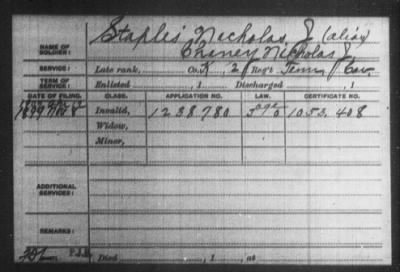 Staples Nicholas J. (alias)
NAME OF SOLDIER: Cheney Nicholas J.
SERVICE: Late rank, Co. K, 2 Reg't Tenn Cav.
TERM OF SERVICE: Enlisted , 1 Discharged , 1
DATE OF FILING. CLASS. APPLICATION NO. LAW. CERTIFICATE NO.
1899 Nov 8 Invalid, 1238,780 1053,408
Widow,
Minor,
ADDITIONAL SERVICES:
REMARKS:
Died , 1 , at